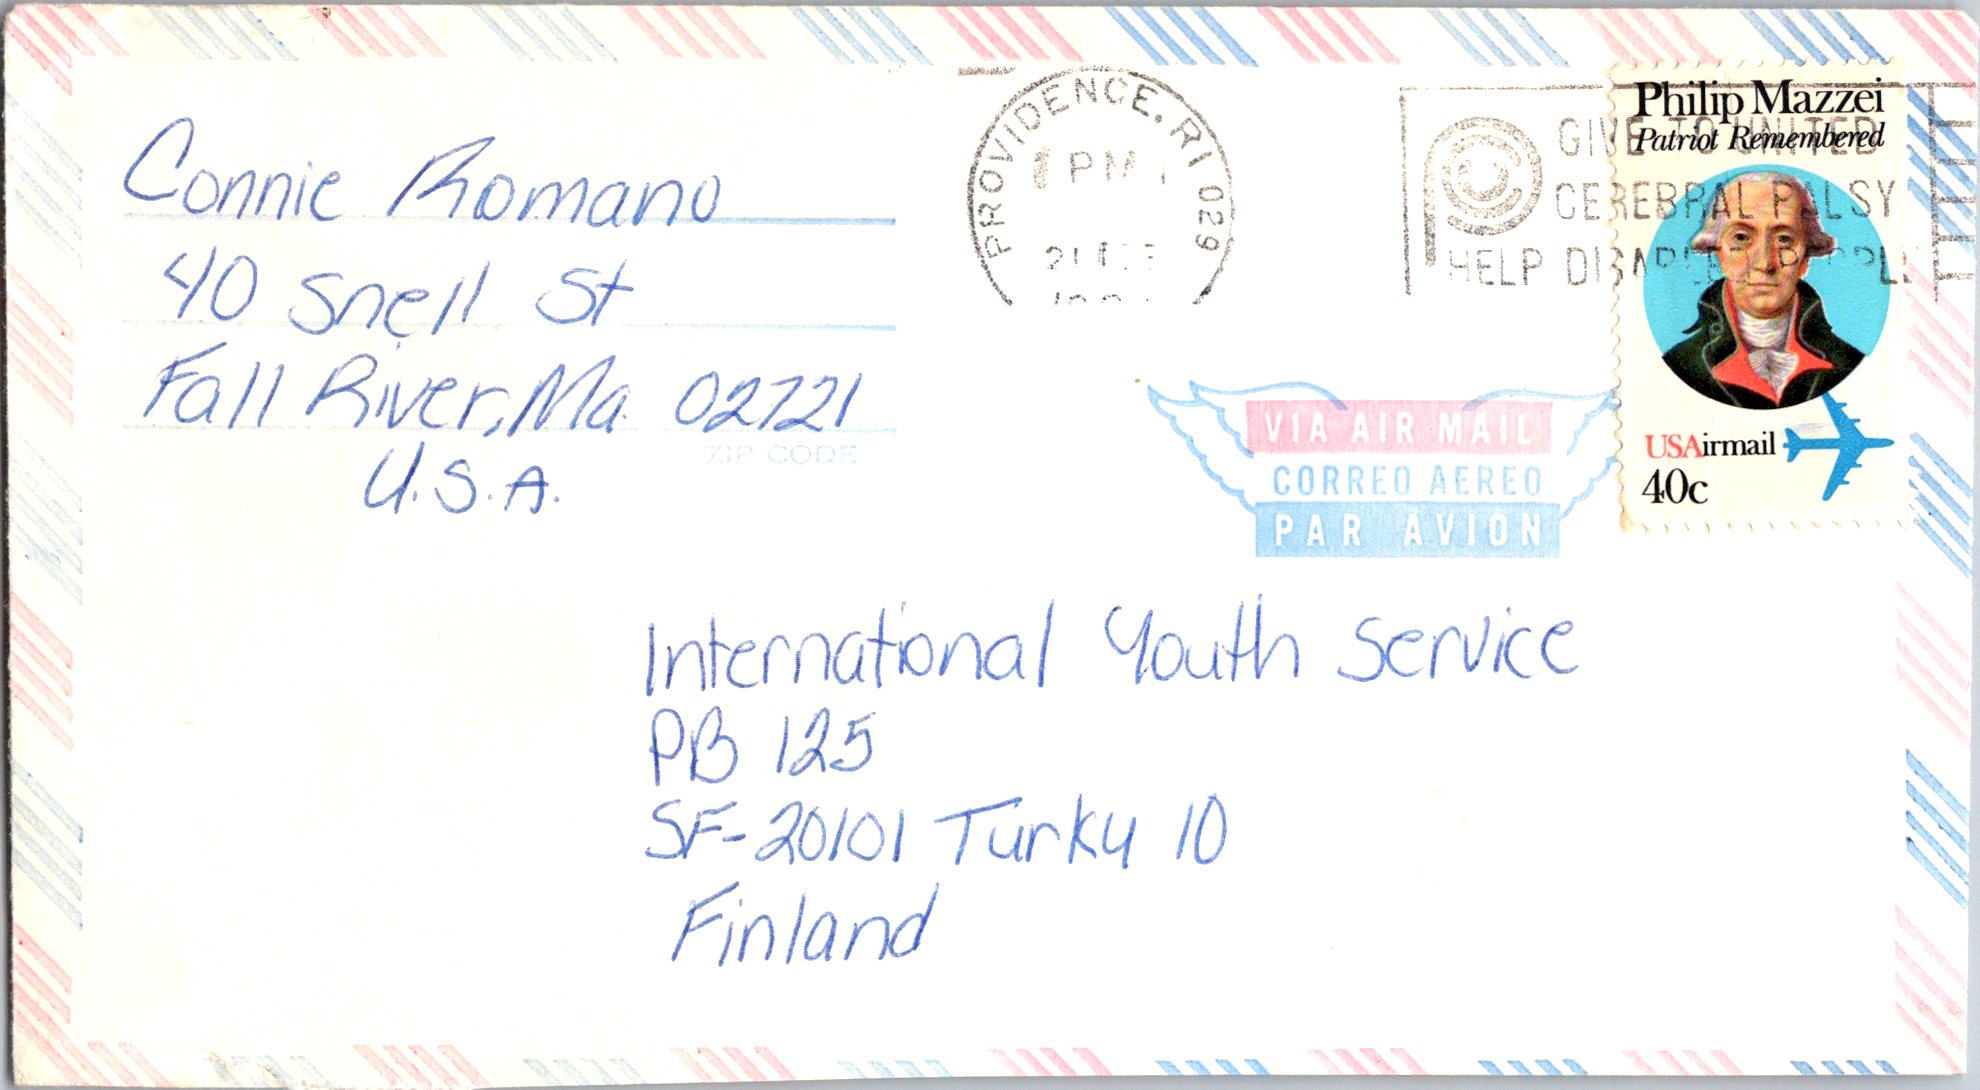 Connie Romano
40 Snell St
Fall River, Ma. 02721
ZIP CODE
U.S.A.
PROVIDENCE, RI 029
PM
21
GIVE TO UNITED
CEREBRAL PALSY
HELP DISABLED PEOPLE
Philip Mazzei
Patriot Remembered
USAirmail
40c
VIA AIR MAIL
CORREO AEREO
PAR AVION
International Youth Service
PB 125
SF-20101 Turky 10
Finland